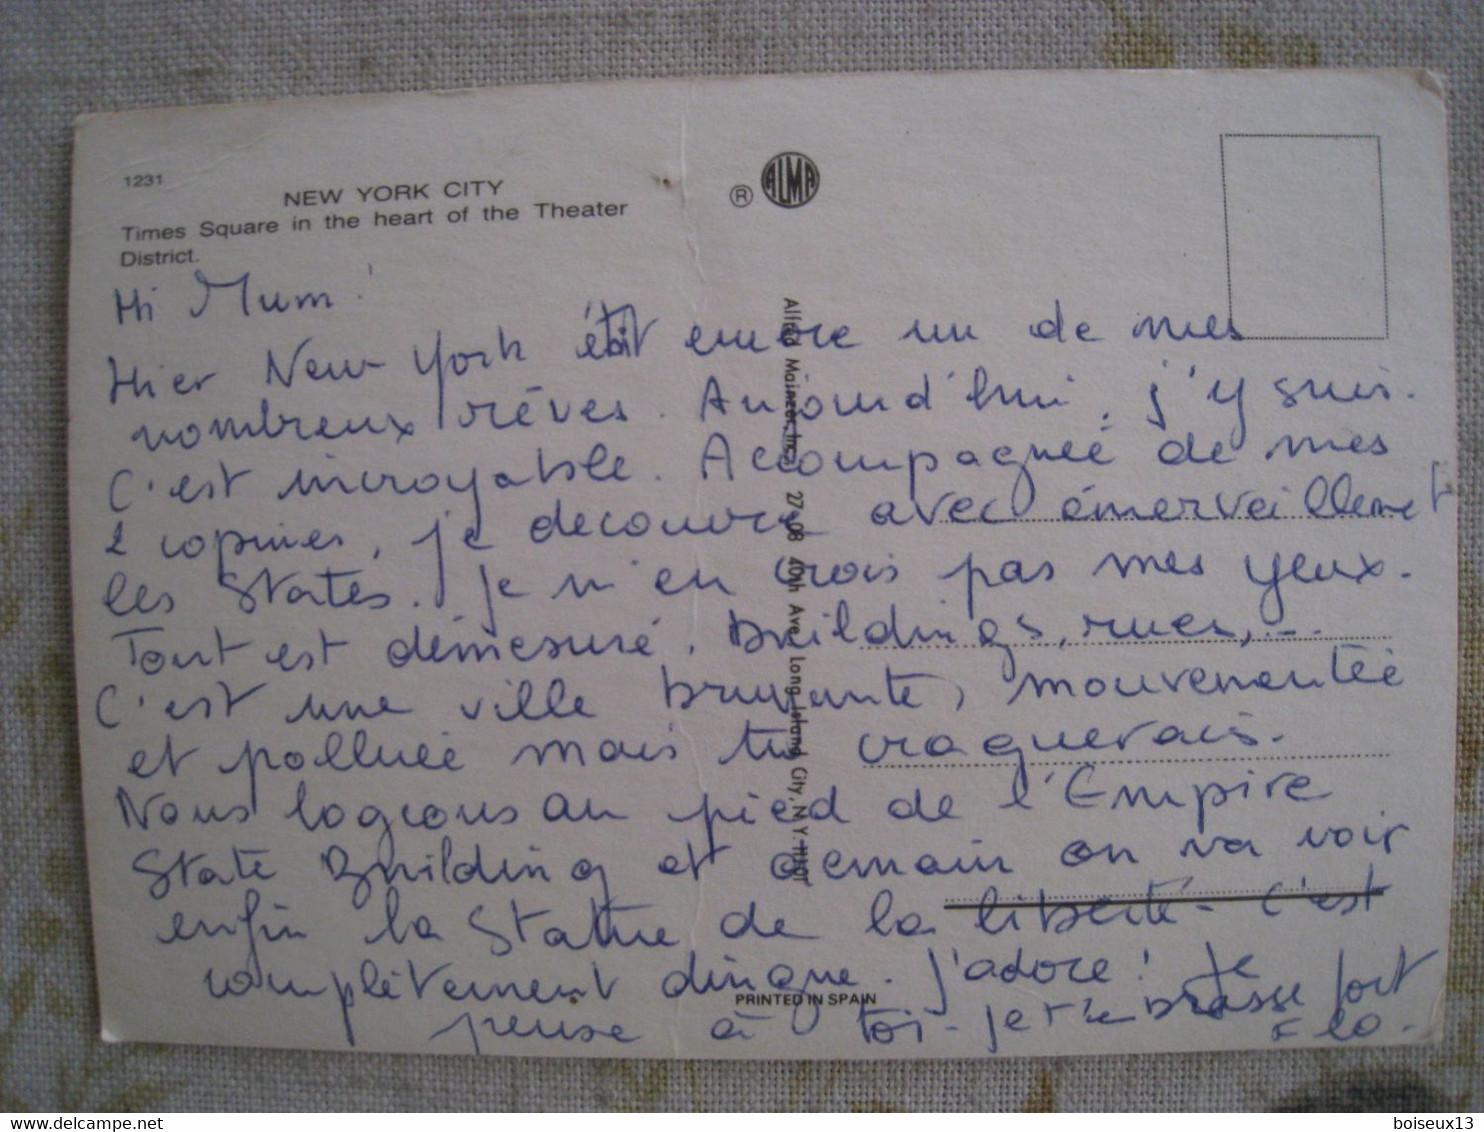 1231
NEW YORK CITY
Times Square in the heart of the Theater
District.
® ALMA
Alfred Mainzer, Inc. 27-08 40th Ave. Long Island City, N.Y. 11101
PRINTED IN SPAIN
Hi Mum!
Hier New York était encore un de mes
nombreux rêves. Aujourd'hui, j'y suis.
C'est incroyable. Accompagnée de mes
2 copines, je decouvre avec émerveillement
les States. Je n'en crois pas mes yeux.
Tout est démesuré. Buildings, rues, ...
C'est une ville bruyante, mouvementée
et polluée mais tu craquerais.
Nous logeons au pied de l'Empire
State Building et demain on va voir
enfin la Statue de la liberté - C'est
complètement dingue. J'adore! Je
pense à toi - Je t'embrasse fort
Flo.
boiseux13